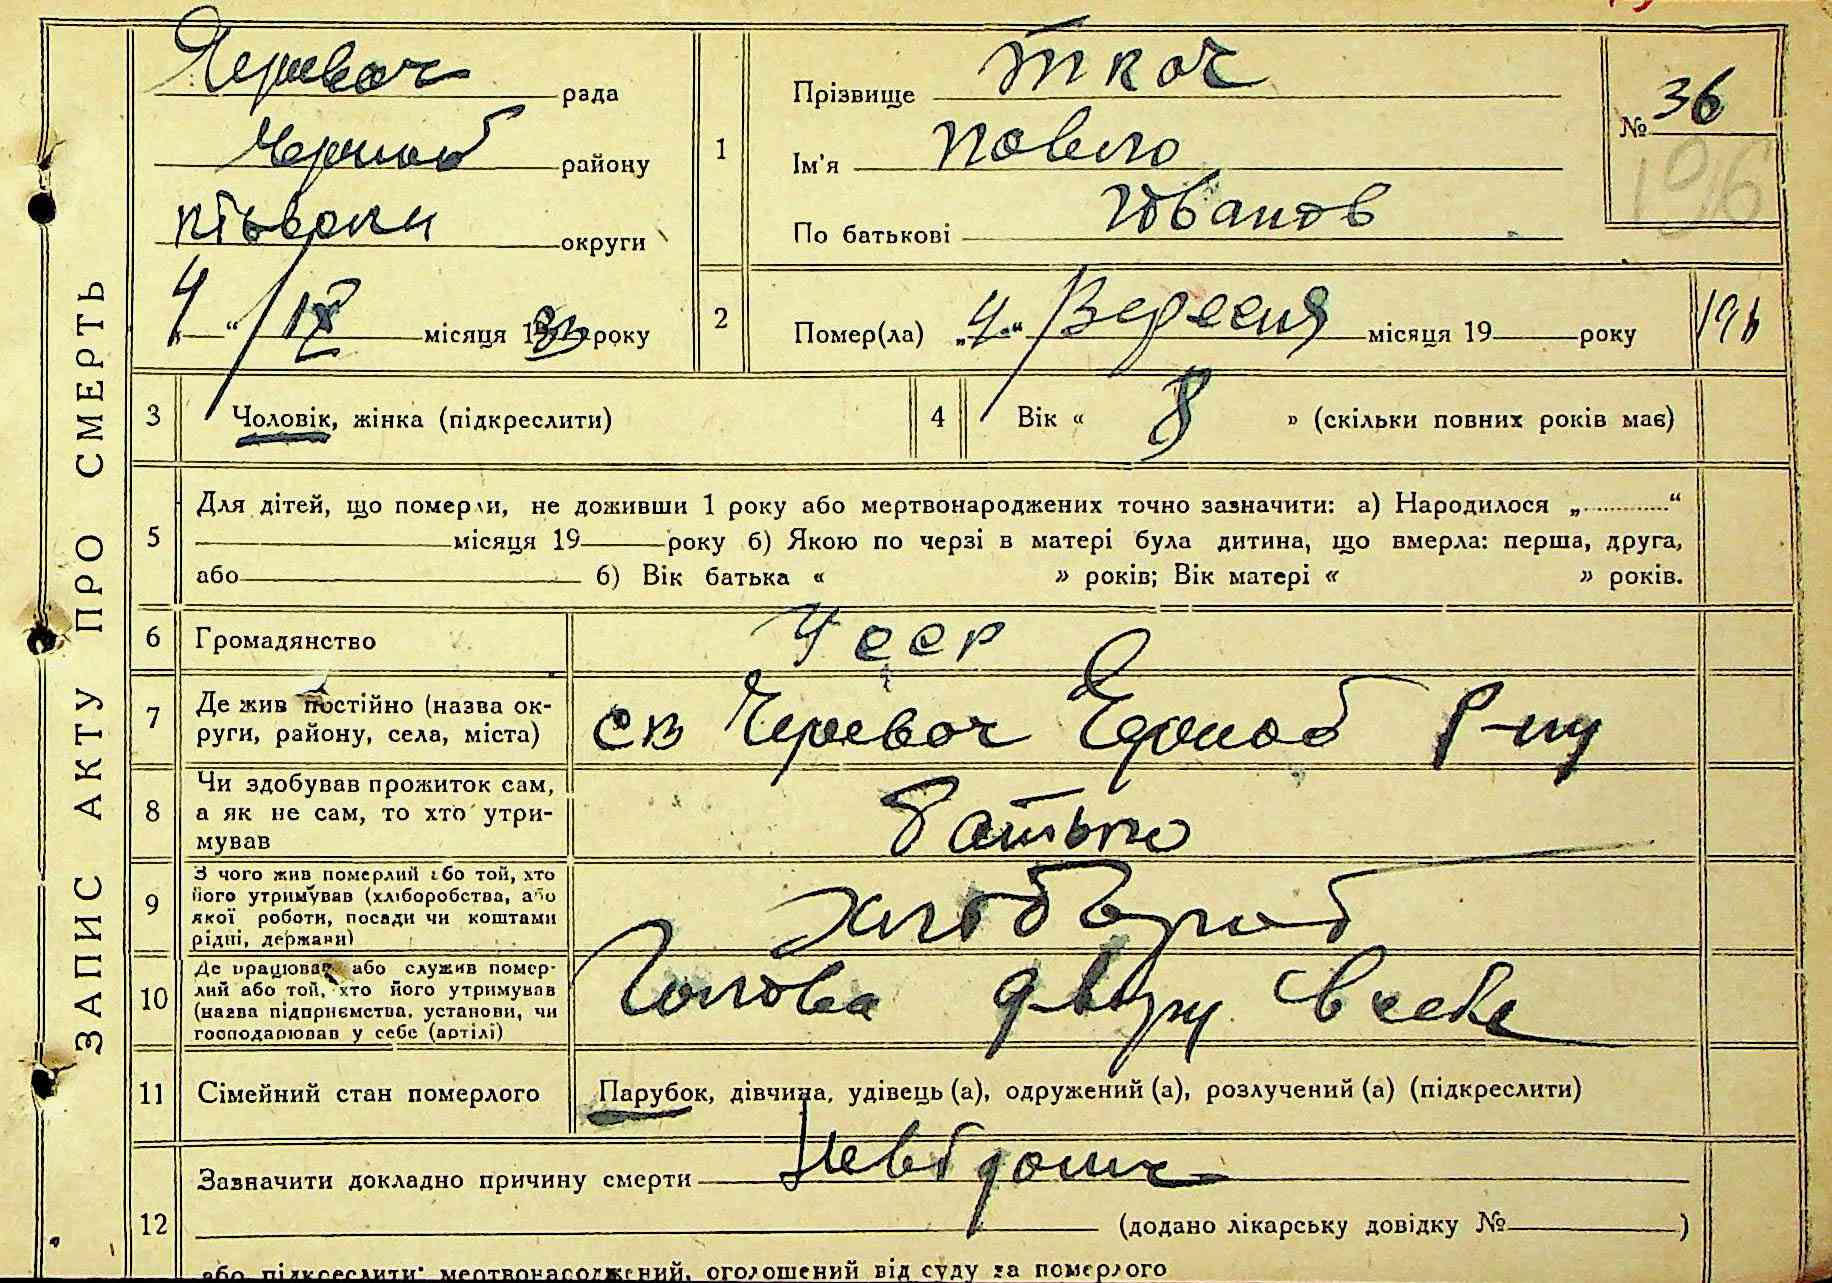 ЗАПИС АКТУ ПРО СМЕРТЬ
Черевач рада
Чорноб району
Київськ округи
4 " IX місяця 1933 року
1
Прізвище Ткач
Ім'я Повело
По батькові Іованов
№ 36
196
2
Помер(ла) „4" Вересня місяця 19 року
3
Чоловік, жінка (підкреслити)
4
Вік « 8 » (скільки повних років має)
5
Для дітей, що померли, не доживши 1 року або мертвонароджених точно зазначити: а) Народилося „ "
місяця 19 року б) Якою по черзі в матері була дитина, що вмерла: перша, друга,
або б) Вік батька « » років; Вік матері « » років.
6
Громадянство
УССР
7
Де жив постійно (назва ок-
руги, району, села, міста)
Черевач Чорноб р-ну
8
Чи здобував прожиток сам,
а як не сам, то хто утри-
мував
батько
9
З чого жив померлий або той, хто
його утримував (хліборобства, або
якої роботи, посади чи коштами
рідні, держави)
хлібороб
10
Де працював або служив помер-
лий або той, хто його утримував
(назва підприємства, установи, чи
господарював у себе (артілі)
Голова двору в себе
11
Сімейний стан померлого
Парубок, дівчина, удівець (а), одружений (а), розлучений (а) (підкреслити)
12
Зазначити докладно причину смерти Невідома
(додано лікарську довідку № )
або підкреслити: мертвонароджений, оголошений від суду за померлого